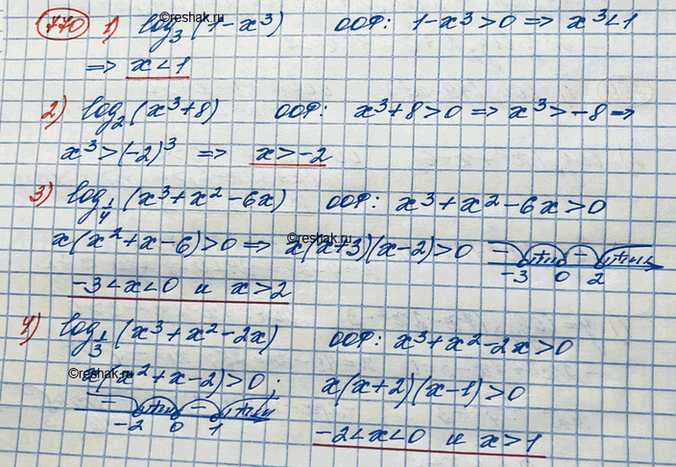 770 1) log₃(1-x³) ООФ: 1-x³>0 => x³<1
=> x<1
2) log₂(x³+8) ООФ: x³+8>0 => x³>-8 =>
x³>(-2)³ => x>-2
3) log_{1/4}(x³+x²-6x) ООФ: x³+x²-6x>0
x(x²+x-6)>0 => x(x+3)(x-2)>0 - + - +
-3 0 2
-3<x<0 и x>2
4) log_{1/3}(x³+x²-2x) ООФ: x³+x²-2x>0
x(x²+x-2)>0; x(x+2)(x-1)>0
- + - +
-2 0 1
-2<x<0 и x>1
©reshak.ru
©reshak.ru
©reshak.ru